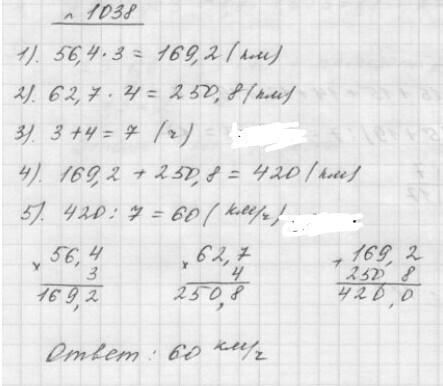 № 1038
1). 56,4·3 = 169,2 (км)
2). 62,7 · 4 = 250,8 (км)
3). 3+4 = 7 (ч)
4). 169,2 + 250,8 = 420 (км)
5). 420 : 7 = 60 ( км/ч)
× 56,4 × 62,7 + 169,2
3 4 250 8
169,2 250,8 420,0
Ответ : 60 км/ч